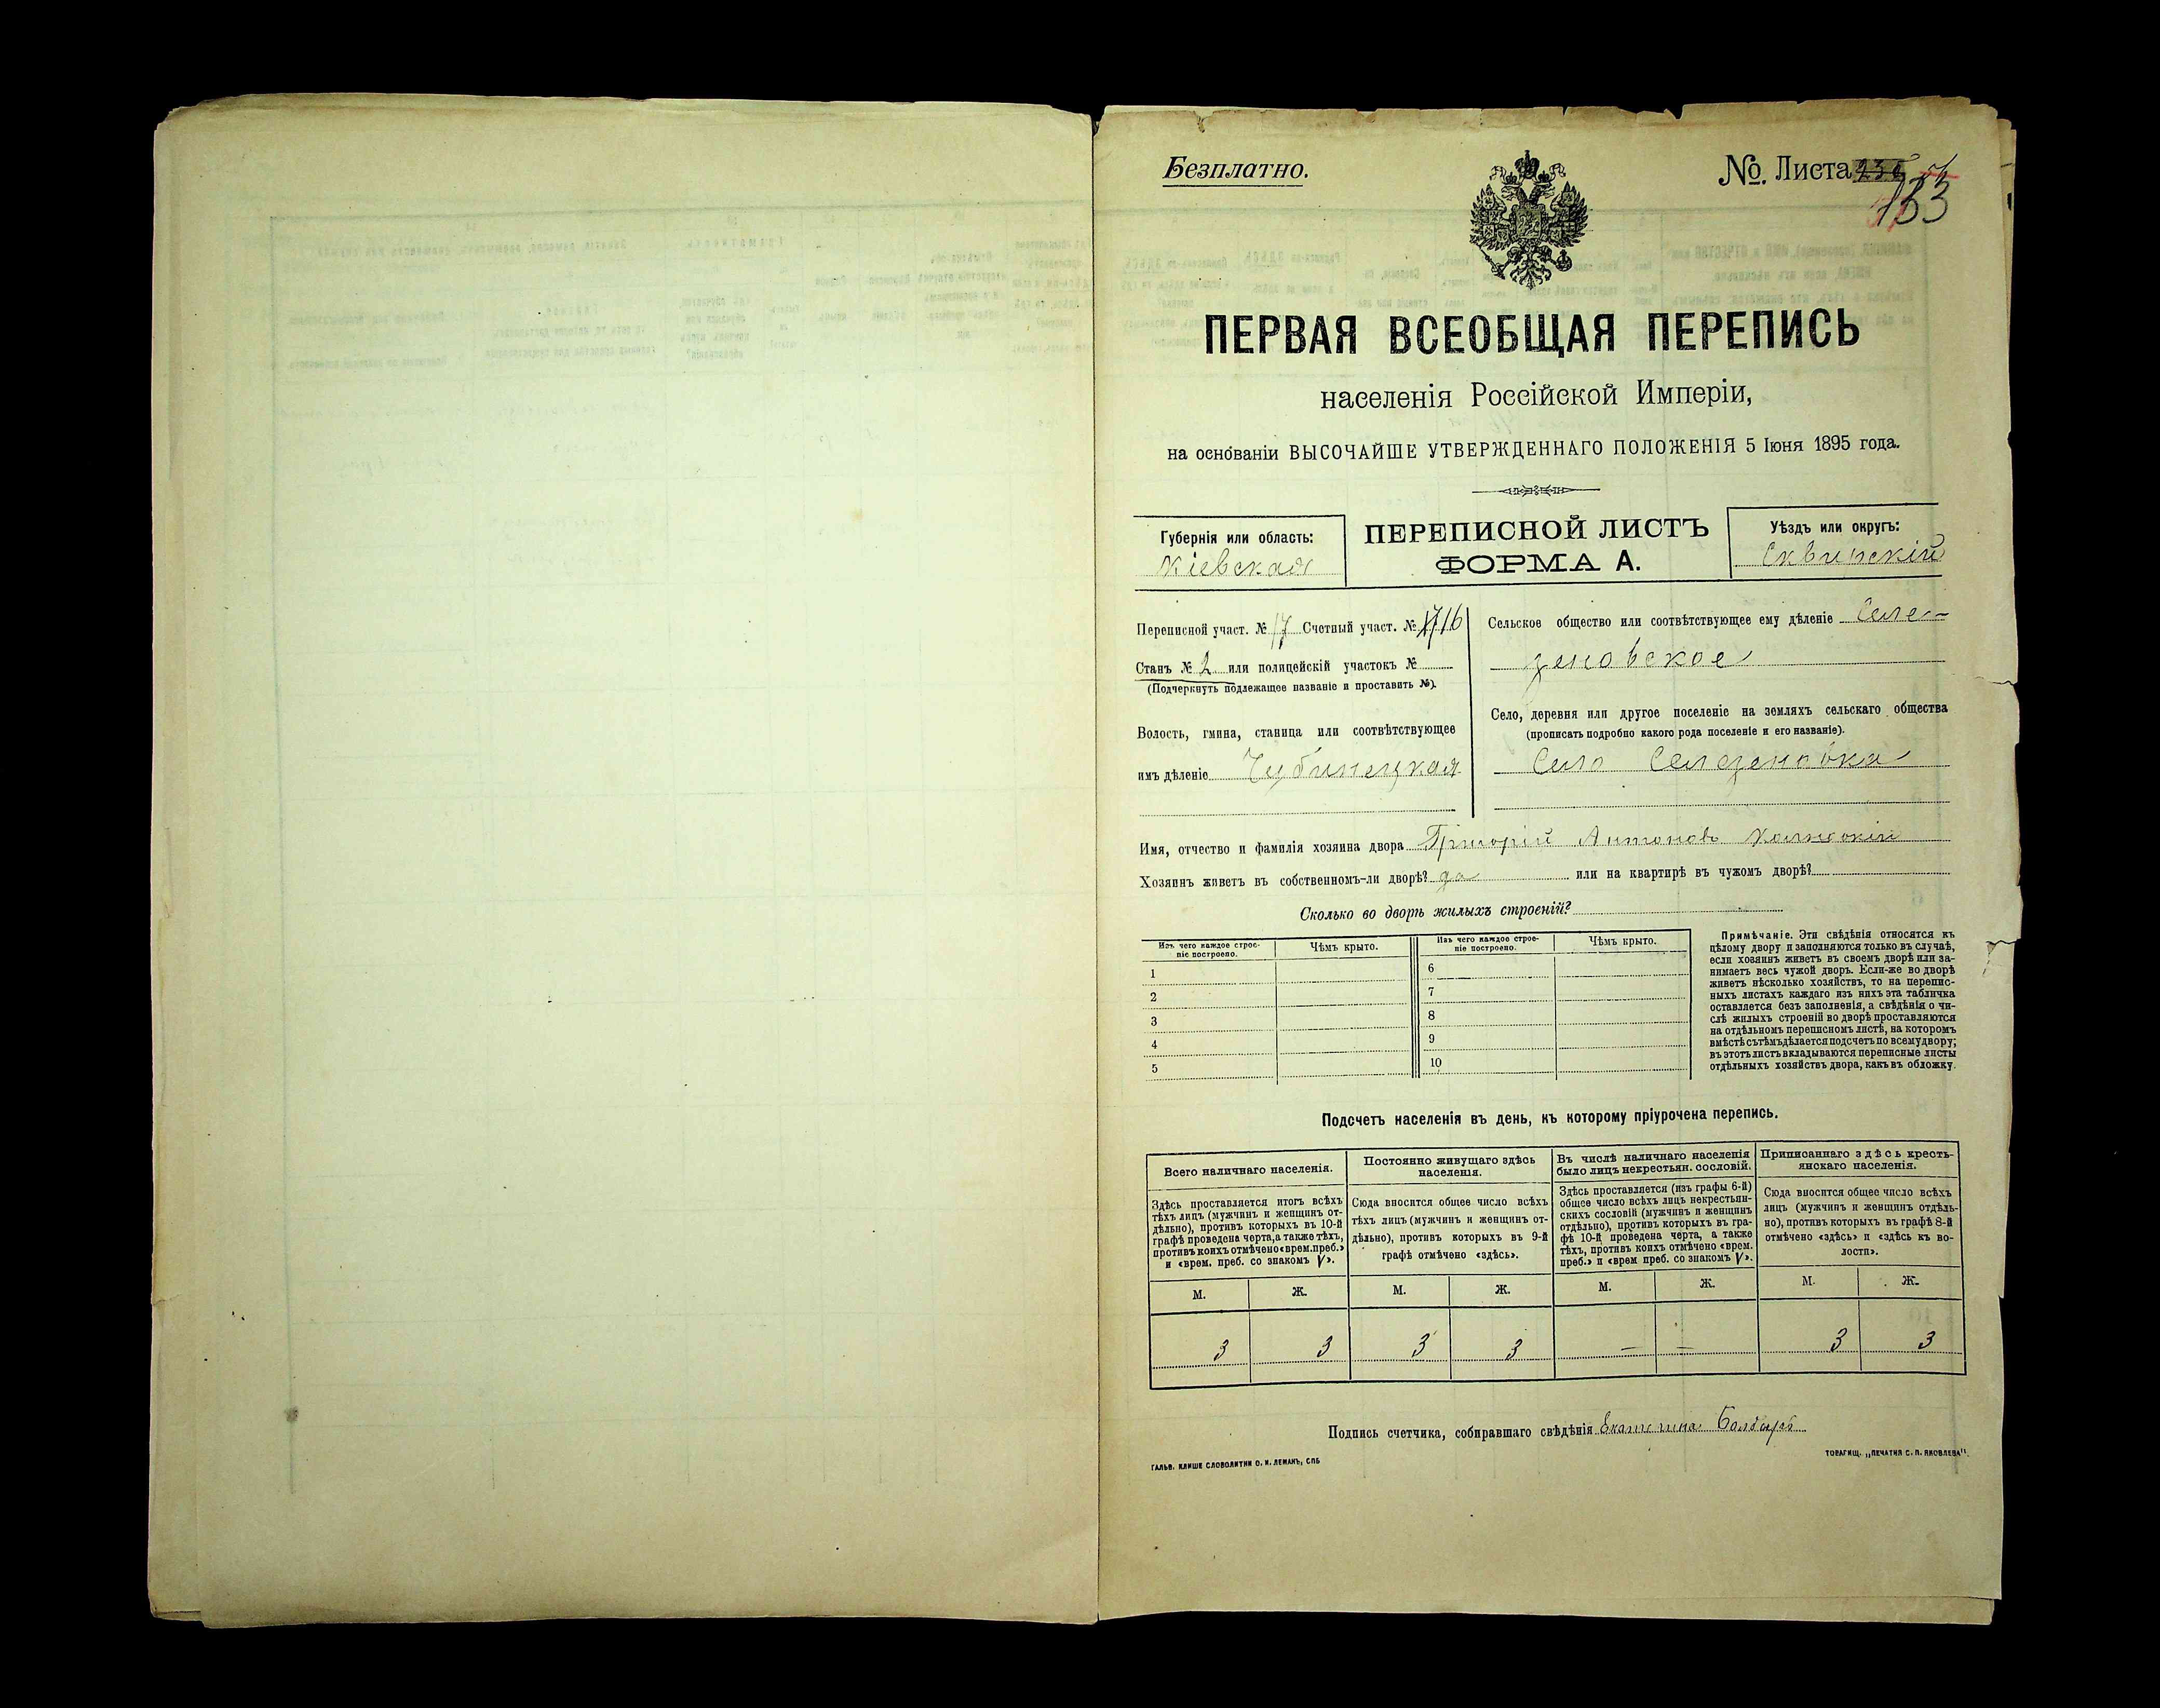 Безплатно.
№. Листа
133
ПЕРВАЯ ВСЕОБЩАЯ ПЕРЕПИСЬ
населенія Россійской Имперіи,
на основаніи ВЫСОЧАЙШЕ УТВЕРЖДЕННАГО ПОЛОЖЕНІЯ 5 Іюня 1895 года.
Губернія или область:
Кіевская
ПЕРЕПИСНОЙ ЛИСТЪ
ФОРМА А.
Уѣздъ или округъ:
Сквирскій
Переписной участ. № 17 Счетный участ. № 16
Станъ № 2 или полицейскій участокъ №
(Подчеркнуть подлежащее названіе и проставить №).
Волость, гмина, станица или соотвѣтствующее
имъ дѣленіе Чубинецкая
Сельское общество или соотвѣтствующее ему дѣленіе Селе-
зеновское
Село, деревня или другое поселеніе на земляхъ сельскаго общества
(прописать подробно какого рода поселеніе и его названіе).
Село Селезеновка
Имя, отчество и фамилія хозяина двора Григорій Антоновъ
Хозяинъ живетъ въ собственномъ-ли дворѣ? да или на квартирѣ въ чужомъ дворѣ?
Сколько во дворѣ жилыхъ строеній?
Изъ чего каждое строе-
ніе построено.
Чѣмъ крыто.
Изъ чего каждое строе-
ніе построено.
Чѣмъ крыто.
1
2
3
4
5
6
7
8
9
10
Примѣчаніе. Эти свѣдѣнія относятся къ
цѣлому двору и заполняются только въ случаѣ,
если хозяинъ живетъ въ своемъ дворѣ или за-
нимаетъ весь чужой дворъ. Если-же во дворѣ
живетъ нѣсколько хозяйствъ, то на перепис-
ныхъ листахъ каждаго изъ нихъ эта табличка
оставляется безъ заполненія, а свѣдѣнія о чи-
слѣ жилыхъ строеній во дворѣ проставляются
на отдѣльномъ переписномъ листѣ, на которомъ
вмѣстѣ съ тѣмъ дѣлается подсчетъ по всему двору;
въ этотъ листъ вкладываются переписные листы
отдѣльныхъ хозяйствъ двора, какъ въ обложку.
Подсчетъ населенія въ день, къ которому пріурочена перепись.
Всего наличнаго населенія.
Здѣсь проставляется итогъ всѣхъ
тѣхъ лицъ (мужчинъ и женщинъ от-
дѣльно), противъ которыхъ въ 10-й
графѣ проведена черта, а также тѣхъ,
противъ коихъ отмѣчено «врем. преб.»
и «врем. преб. со знакомъ V».
Постоянно живущаго здѣсь
населенія.
Сюда вносится общее число всѣхъ
тѣхъ лицъ (мужчинъ и женщинъ от-
дѣльно), противъ которыхъ въ 9-й
графѣ отмѣчено «здѣсь».
Въ числѣ наличнаго населенія
было лицъ некрестьян. сословій.
Здѣсь проставляется (изъ графы 6-й)
общее число всѣхъ лицъ некрестьян-
скихъ сословій (мужчинъ и женщинъ
отдѣльно), противъ которыхъ въ гра-
фѣ 10-й проведена черта, а также
тѣхъ, противъ коихъ отмѣчено «врем.
преб.» и «врем преб. со знакомъ V».
Приписаннаго здѣсь кресть-
янскаго населенія.
Сюда вносится общее число всѣхъ
лицъ (мужчинъ и женщинъ отдѣль-
но), противъ которыхъ въ графѣ 8-й
отмѣчено «здѣсь» и «здѣсь къ во-
лости».
М. Ж. М. Ж. М. Ж. М. Ж.
3 3 3 3 — — 3 3
Подпись счетчика, собиравшаго свѣдѣнія
ГАЛЬВ. КЛИШЕ СЛОВОЛИТНИ О. И. ЛЕМАНЪ, СПБ
ТОВАРИЩ. „ПЕЧАТНЯ С. П. ЯКОВЛЕВА".